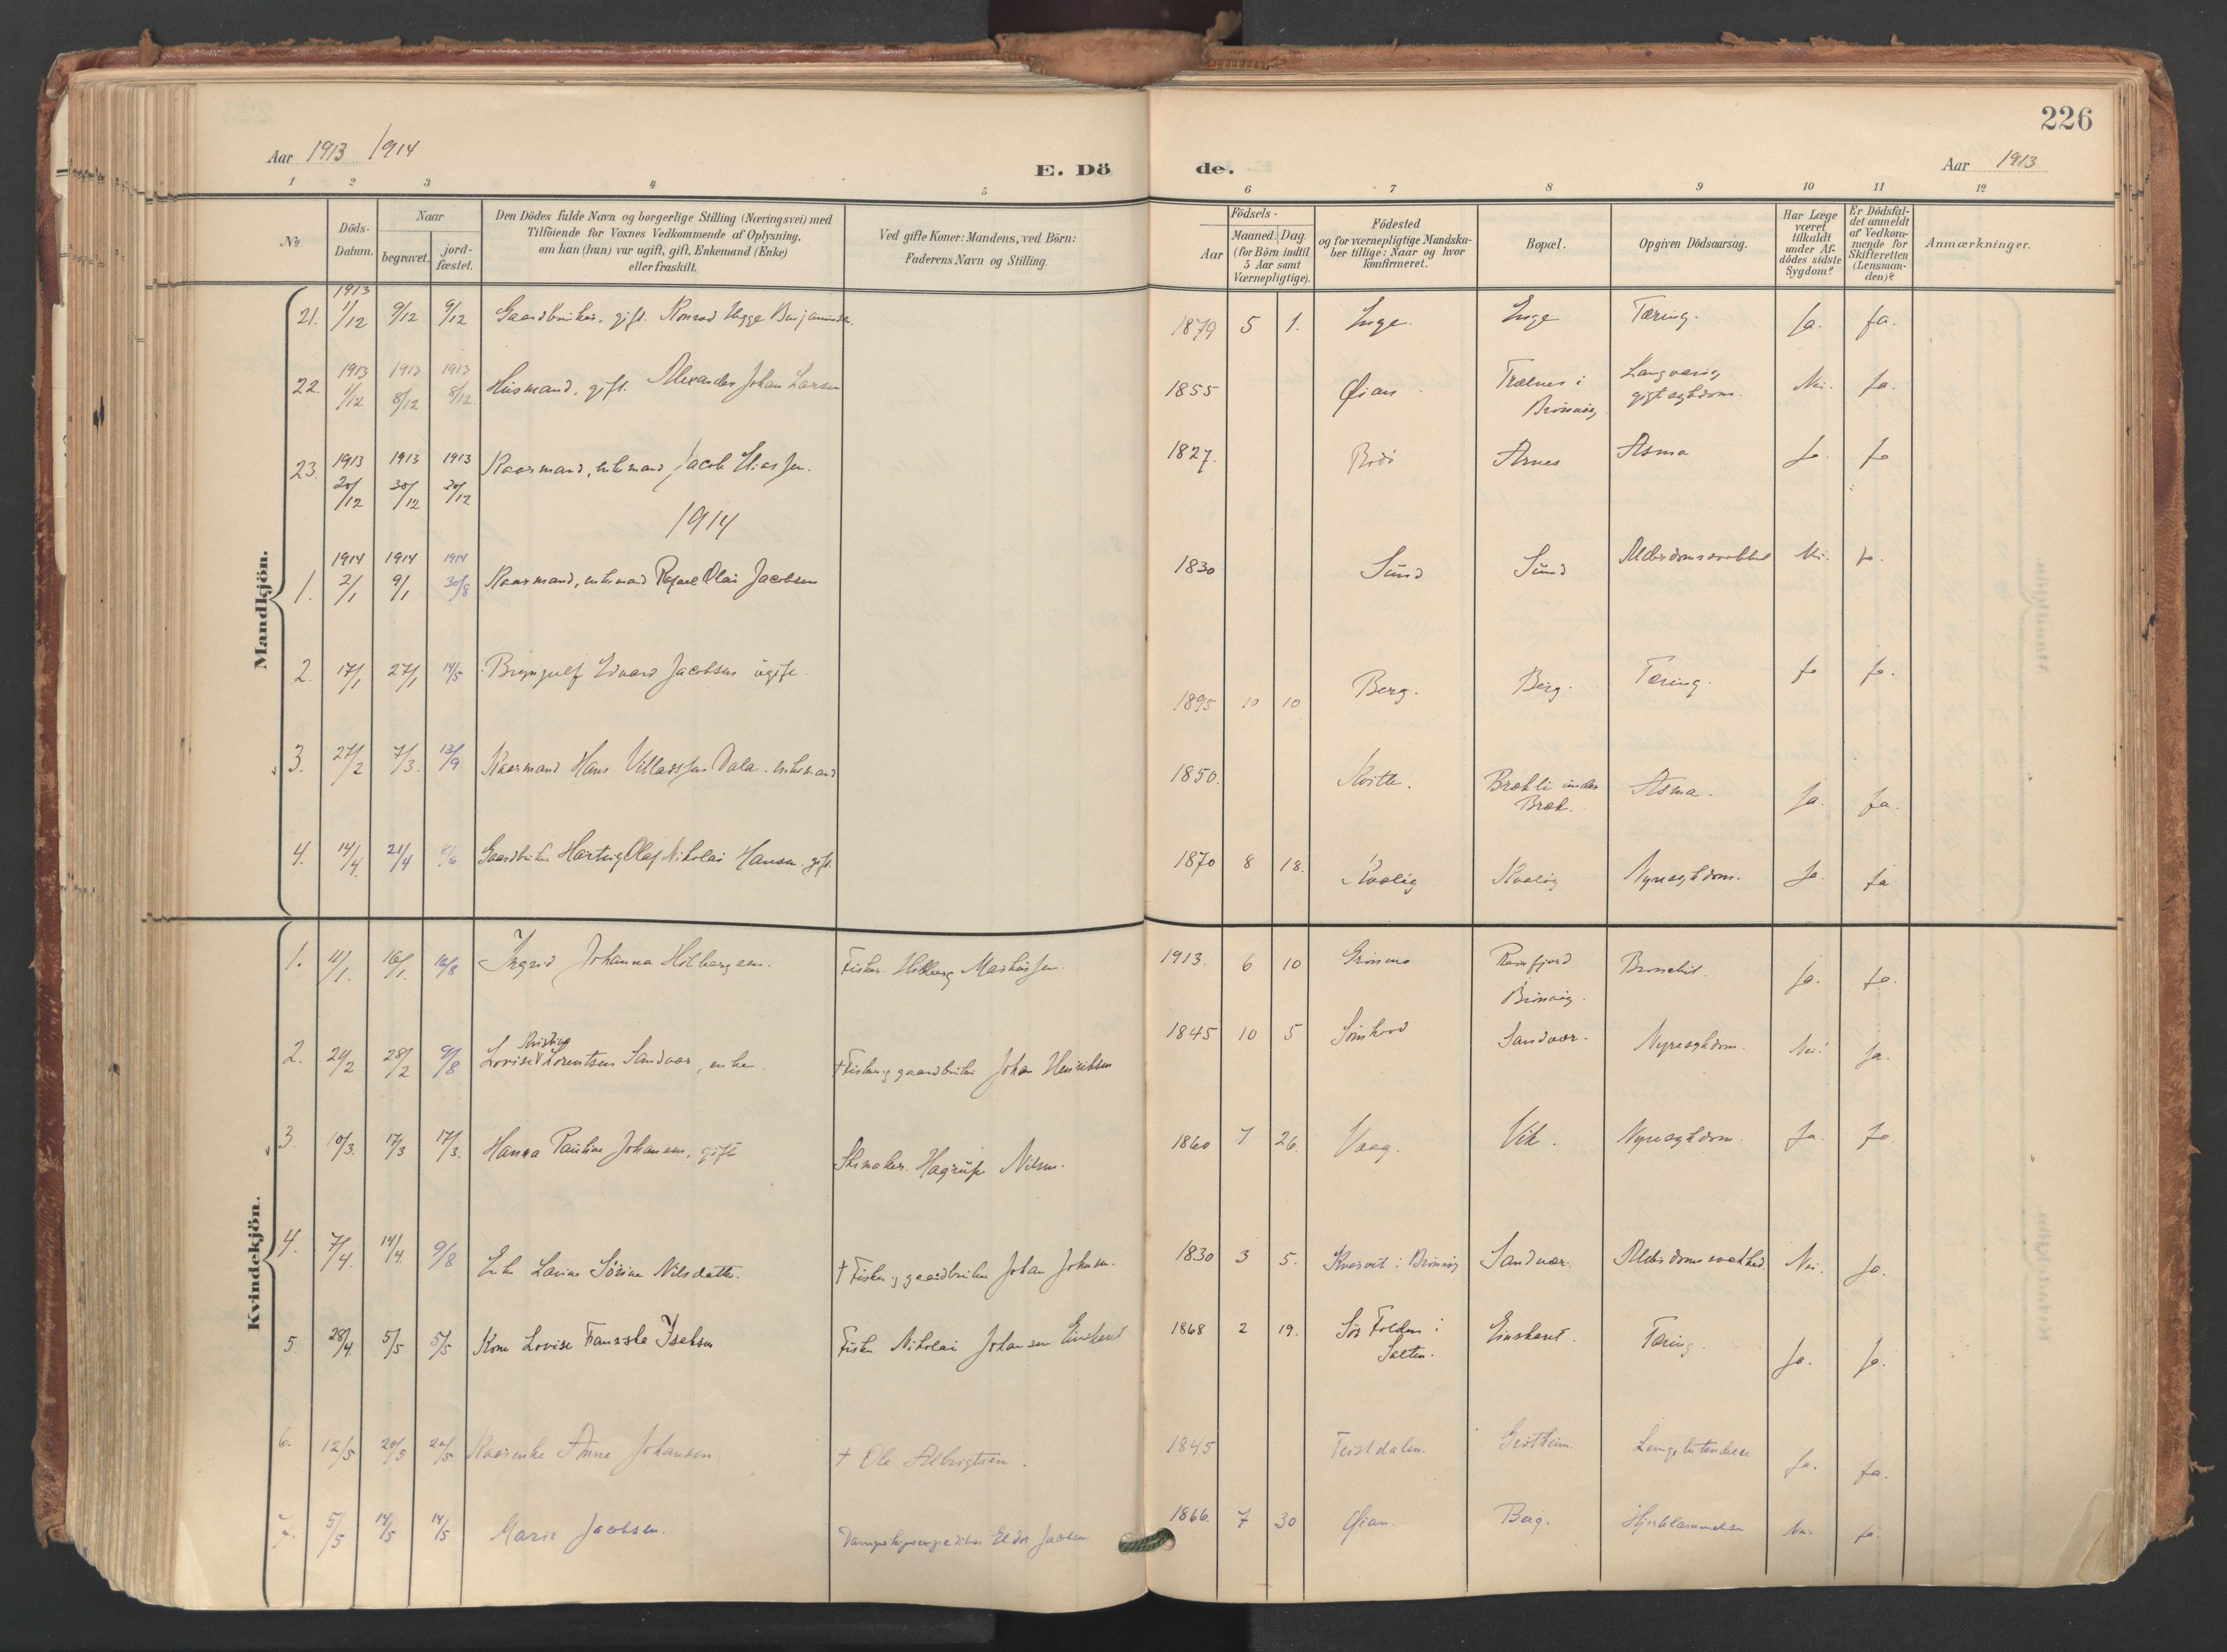 226
Aar 1913 1914
E. Dö
de.
Aar 1913
1 2 3 4 5 6 7 8 9 10 11 12
No
Döds-Datum.
Naar
begravet.
jord-fæstet.
Den Dödes fulde Navn og borgerlige Stilling (Næringsvei) med
Tilföiende for Voxnes Vedkommende af Oplysning,
om han (hun) var ugift, gift, Enkemand (Enke)
eller fraskilt.
Ved gifte Koner: Mandens, ved Börn:
Faderens Navn og Stilling.
Födsels-
Aar
Maaned. Dag.
(for Börn indtil
5 Aar samt
Værnepligtige).
Födested
og for værnepligtige Mandska-
ber tillige: Naar og hvor
konfirmeret.
Bopæl.
Opgiven Dödsaarsag.
Har Læge
været
tilkaldt
under Af-
dödes sidste
Sygdom?
Er Dödsfal-
det anmeldt
af Vedkom-
mende for
Skifteretten
(Lensman-
den)?
Anmærkninger.
Mandkjön.
21. 1913 1/12 9/12 9/12 Gaardbruker, gift. Konrad Benjaminsen 1879 5 1. Tæring. Ja. Ja.
22. 1913 1/12 1913 8/12 1913 8/12 Husmand, gift. Alexander Johan Larsen 1855 Øian Trælnes i
Brønnøy Langvarig
gigtsygdom. Nei. Ja.
23. 1913 20/12 1913 30/12 1913 30/12 Kaarmand, enkemand, Jacob Eliassen. 1827. Bodø Aunes Asma Ja Ja
1914
1. 1914 2/1 1914 9/1 1914 30/8 Kaarmand, enkemand Rafael Olai Jacobsen 1830 Sund Sund Alderdomssvakhed Nei. Ja.
2. 17/1 27/1 14/5 Brynjulf Edvard Jacobsen ugift. 1895 10 10 Berg. Berg. Tæring. Ja Ja.
3. 27/2 7/3. 13/9. Kaarmand Hans Villadssen Dala. enkemand 1850. Brækli under
Bræk. Asma. Ja. Ja.
4. 14/4. 21/4 8/6 Gaardbruker Hartvig Olaf Nikolai Hansen. gift. 1870 8 18. Kvaløy Kvaløy Nyresygdom. Ja. Ja
Kvindekjön.
1. 11/1. 16/1. 16/8 Ingrid Johanna Holbergsen. Fisker. Holberg Markussen. 1913. 6 10 Grønmo
Brønnøy. Bronchit. Ja. Ja.
2. 20/2 28/2 9/8 Lovise Kristine Lorentsen Sandvær, enke. † Fisker og gaardbruker Johan Henriksen 1845 10 5 Sandvær. Nyresygdom. Nei. Ja.
3. 10/3. 17/3 17/3. Hanna Pauline Johansen, gift Skomaker. Hagrup Nilsen. 1860 7 26. Vaag. Vik. Nyresygdom. Ja. Ja
4. 7/4. 14/4. 9/8 Enke Lavine Sørine Nilsdatter. † Fisker og gaardbruker Johan Johnsen. 1830 3 5. i Brønnøy Sandvær. Alderdomssvakhed Nei. Ja.
5. 28/4 5/5 5/5 Kone Lovise Franziska Isaksen Fisker Nikolai Johansen Einskaret 1868 2 19. Sør Folden i
Salten. Einskaret. Tæring. Ja. Ja.
6. 12/5 20/5 20/5 Kaarenke Anne Johansen † Ole Albrigtsen. 1845 Teistdalen. Lungebetændelse Ja. Ja.
7. 5/5 14/5 14/5 Marie Jacobsen. Dampskipsexpeditør Eldor Jacobsen 1866. 7 30 Øian. Berg. Hjertelammelse Nei. Ja.